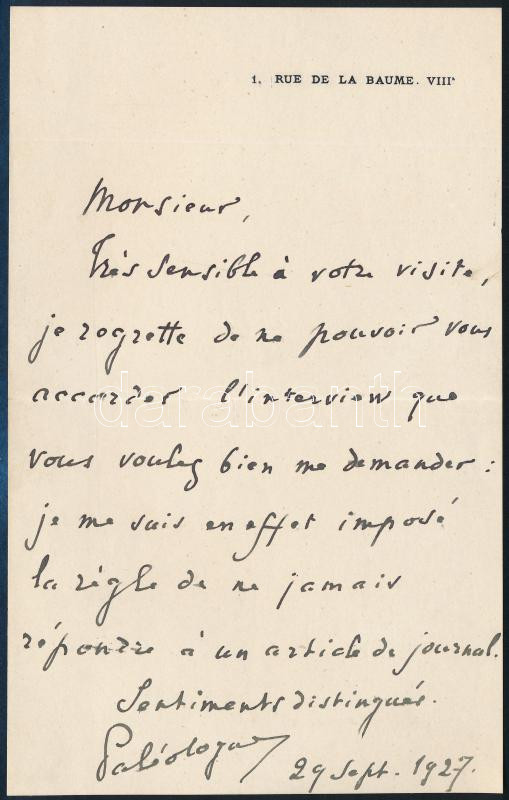 1. RUE DE LA BAUME. VIIIe
Monsieur,
Très sensible à votre visite,
je regrette de ne pouvoir vous
accorder l'interview que
darabanth
vous voulez bien me demander :
je me suis en effet imposé
la règle de ne jamais
répondre à un article de journal.
Sentiments distingués.
Paléologue
29 Sept. 1927.